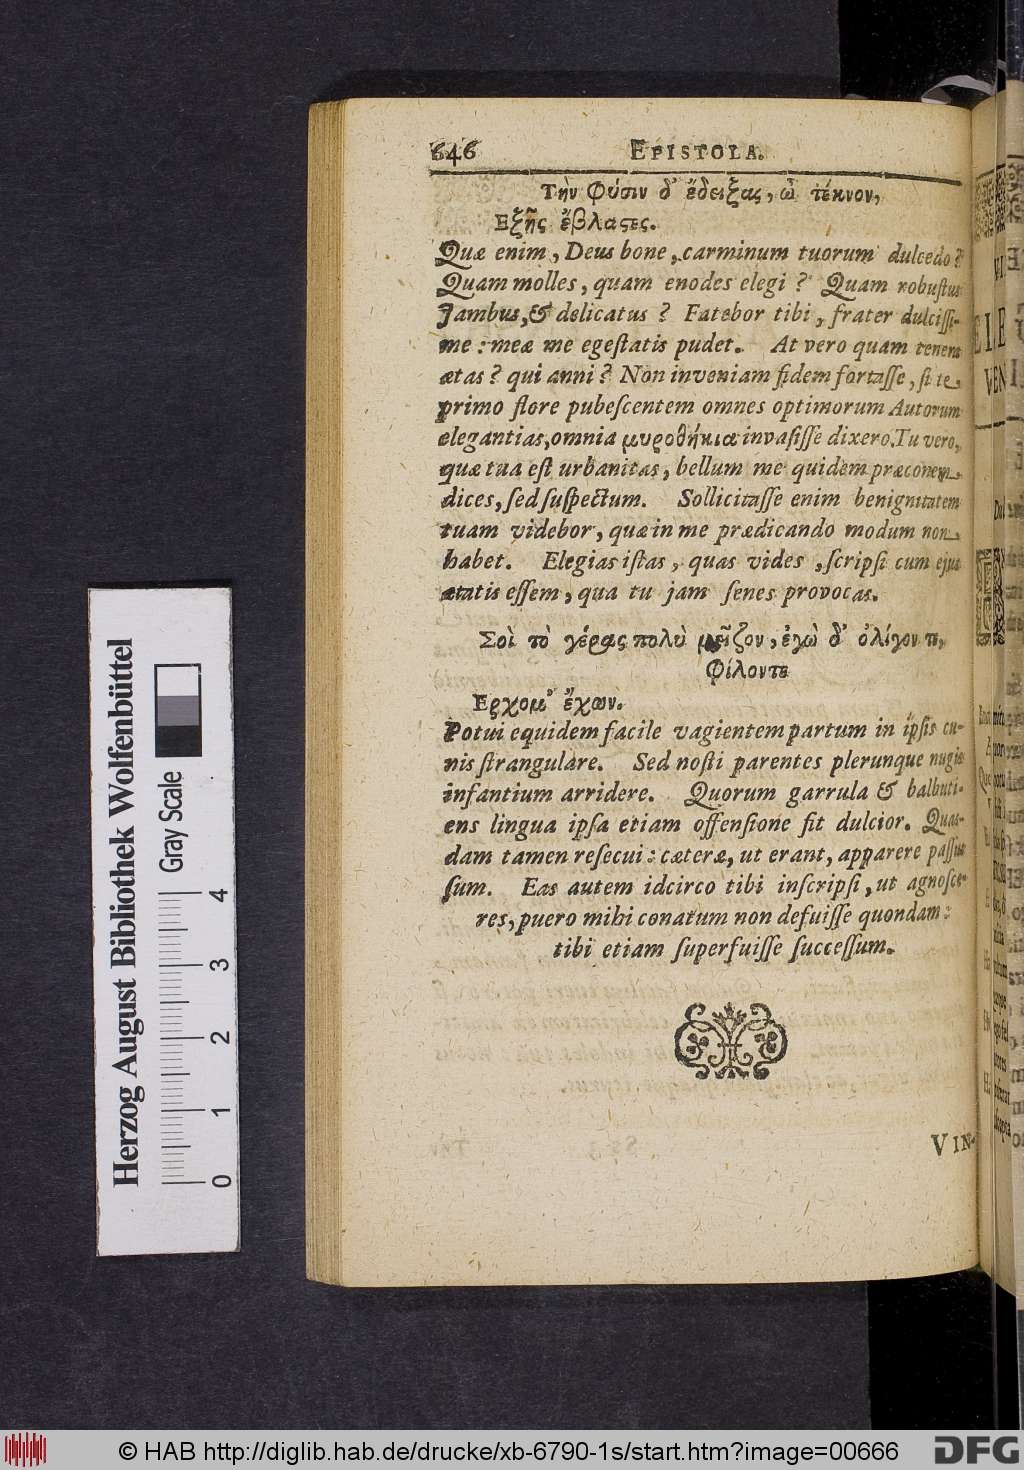 646 EPISTOLA.
Τὴν φύσιν δ' ἔδειξας, ὦ τέκνον,
Εξῆς ἔβλαςες.
Quæ enim, Deus bone, carminum tuorum dulcedo?
Quam molles, quam enodes elegi? Quam robuſtus
Jambus, & delicatus? Fatebor tibi, frater dulciſſi-
me: meæ me egeſtatis pudet. At vero quam tenera
ætas? qui anni? Non inveniam fidem fortaſſe, ſi te
primo flore pubeſcentem omnes optimorum Autorum
elegantias, omnia μυροθήκια invaſiſſe dixero. Tu vero,
quæ tua eſt urbanitas, bellum me quidem præconem
dices, ſed ſuſpectum. Sollicitaſſe enim benignitatem
tuam videbor, quæ in me prædicando modum non
habet. Elegias iſtas, quas vides, ſcripſi cum ejus
ætatis eſſem, qua tu jam ſenes provocas.
Σοὶ τὸ γέρας πολὺ μεῖζον, ἐγὼ δ' ὀλίγον τι,
φίλον τε
Ερχομ' ἔχων.
Potui equidem facile vagientem partum in ipſis cu-
nis ſtrangulare. Sed noſti parentes plerunque nugis
infantium arridere. Quorum garrula & balbuti-
ens lingua ipſa etiam offenſione fit dulcior. Quas-
dam tamen reſecui: cæteræ, ut erant, apparere paſſus
ſum. Eas autem idcirco tibi inſcripſi, ut agnoſce-
res, puero mihi conatum non defuiſſe quondam:
tibi etiam ſuperfuiſſe ſucceſſum.
VIN-
Herzog August Bibliothek Wolfenbüttel
Gray Scale
0 1 2 3 4
© HAB http://diglib.hab.de/drucke/xb-6790-1s/start.htm?image=00666
DFG